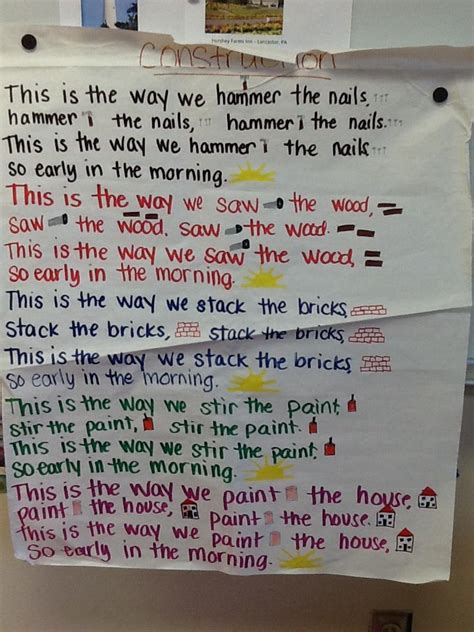 Hershey Farms Inn - Lancaster, PA
Construction
This is the way we hammer the nails,
hammer the nails, hammer the nails.
This is the way we hammer the nails
so early in the morning.
This is the way we saw the wood,
saw the wood, saw the wood.
This is the way we saw the wood,
so early in the morning.
This is the way we stack the bricks,
Stack the bricks, stack the bricks.
This is the way we stack the bricks
so early in the morning.
This is the way we stir the paint,
stir the paint, stir the paint.
This is the way we stir the paint,
so early in the morning.
This is the way we paint the house,
paint the house, paint the house.
This is the way we paint the house,
So early in the morning.